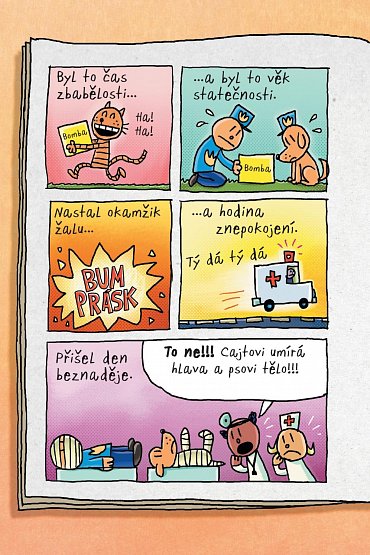 Byl to čas
zbabělosti...
Bomba
Ha!
Ha!
...a byl to věk
statečnosti.
Bomba
Nastal okamžik
žalu...
BUM
PRÁSK
...a hodina
znepokojení.
Tý dá tý dá
Přišel den
beznaděje.
To ne!!! Cajtovi umírá
hlava a psovi tělo!!!